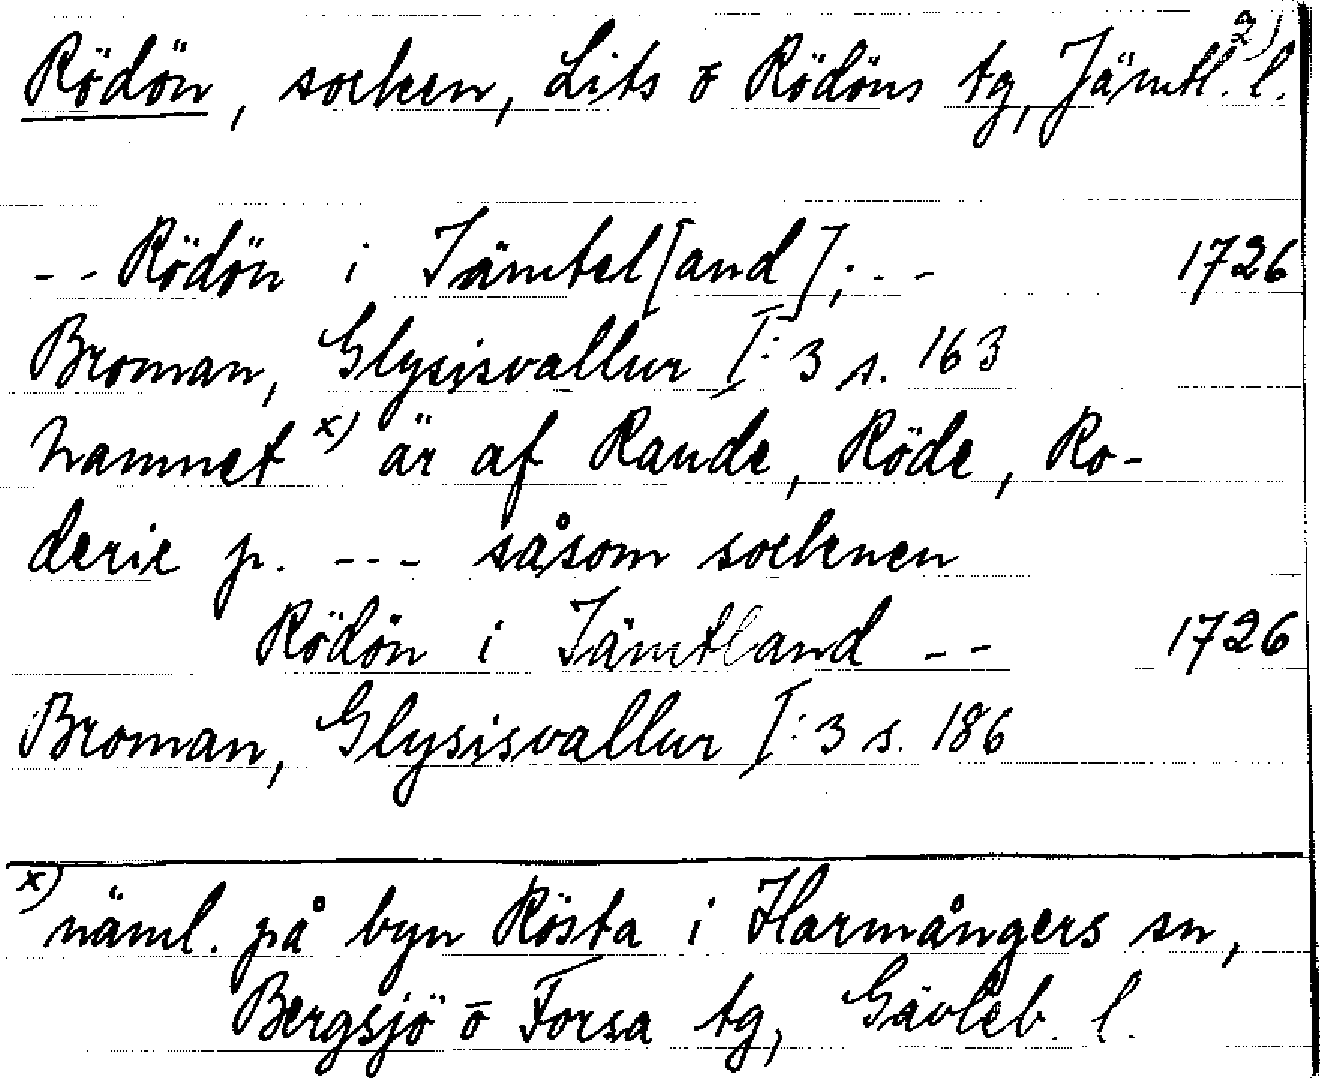 Rödön, socken, Lits o Rödöns tg, Jämtl. l. 2)
-- Rödön i Jämtel[and]; -- 1726
Broman, Glysisvallur I:3 s. 163
namnet x) är af Raude, Röde, Ro-
derie p. --- såsom socknen
Rödön i Jämtland -- 1726
Broman, Glysisvallur I:3 s. 186
x) näml. på byn Rösta i Harmångers sn,
Bergsjö o Forsa tg, Gävleb. l.